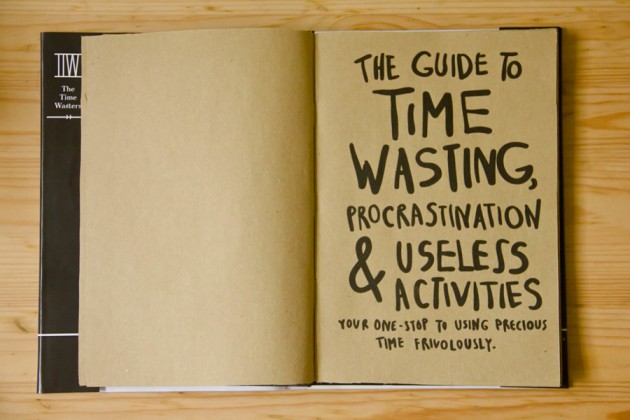 IIW
The
Time
Wasters
THE GUIDE TO
TIME
WASTING,
PROCRASTINATION
& USELESS
ACTIVITIES
YOUR ONE-STOP TO USING PRECIOUS
TIME FRIVOLOUSLY.